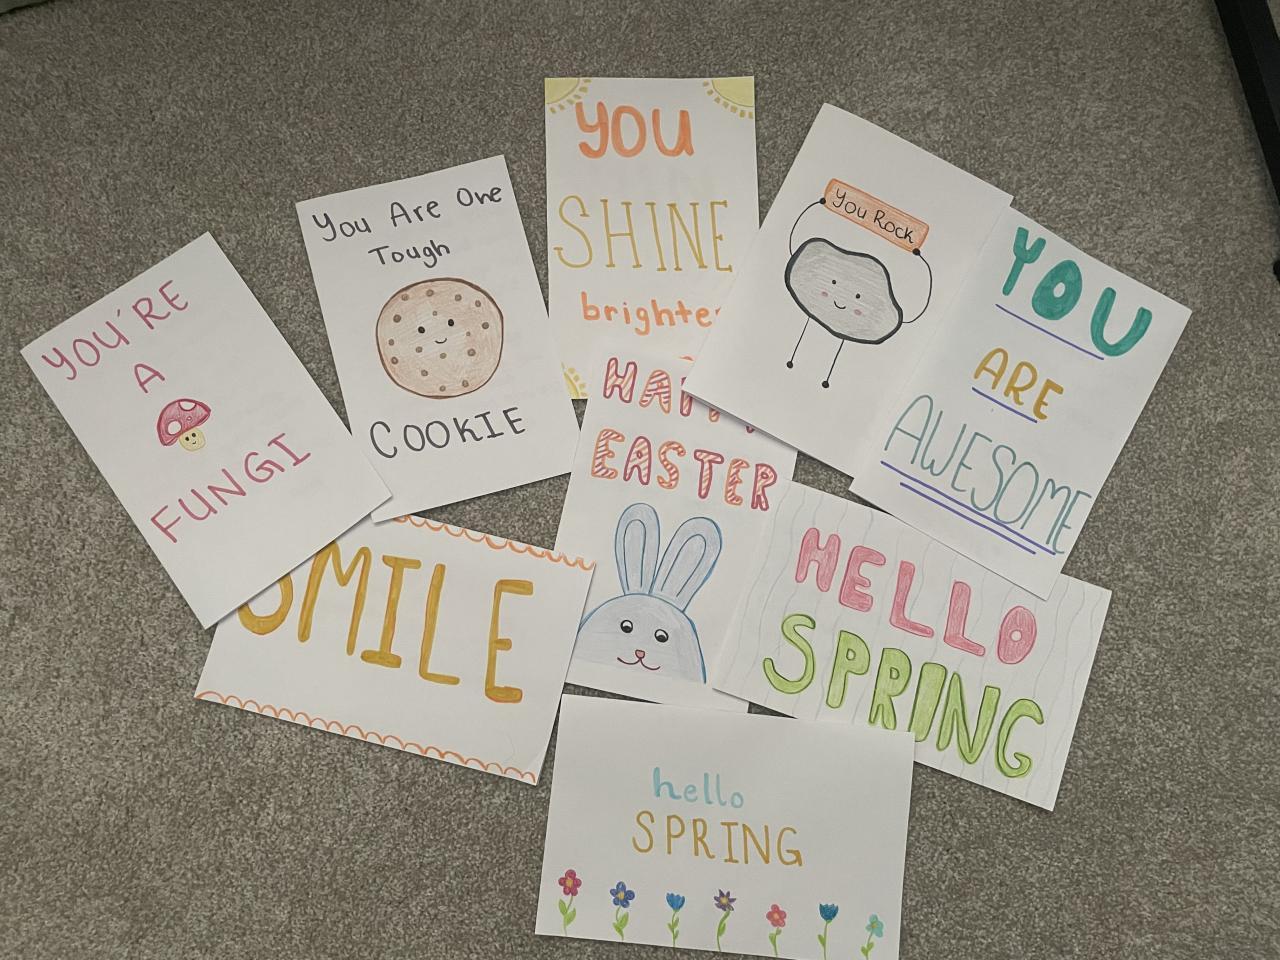 YOU'RE
A
FUNGI
You Are One
Tough
COOKIE
YOU
SHINE
brighter
You Rock
YOU
ARE
AWESOME
SMILE
HAPPY
EASTER
HELLO
SPRING
hello
SPRING